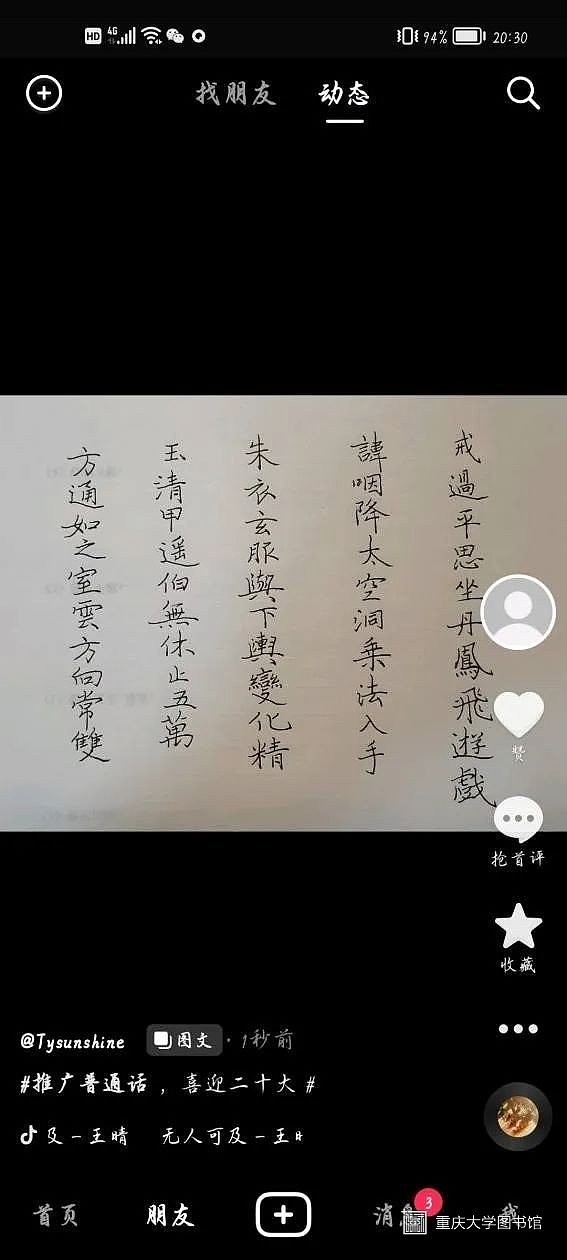 HD 4G 94% 20:30
找朋友 动态
戒過平思坐丹鳳飛遊戲
諱咽降太空洞乗法入手
朱衣玄服與下輿變化精
玉清甲遥伯無休止五萬
方通如之室雲方向常雙
赞
抢首评
收藏
@Tysunshine 图文 · 1秒前
#推广普通话 ，喜迎二十大 #
及一王晴 无人可及一王
首页 朋友 消息 3 我
重庆大学图书馆